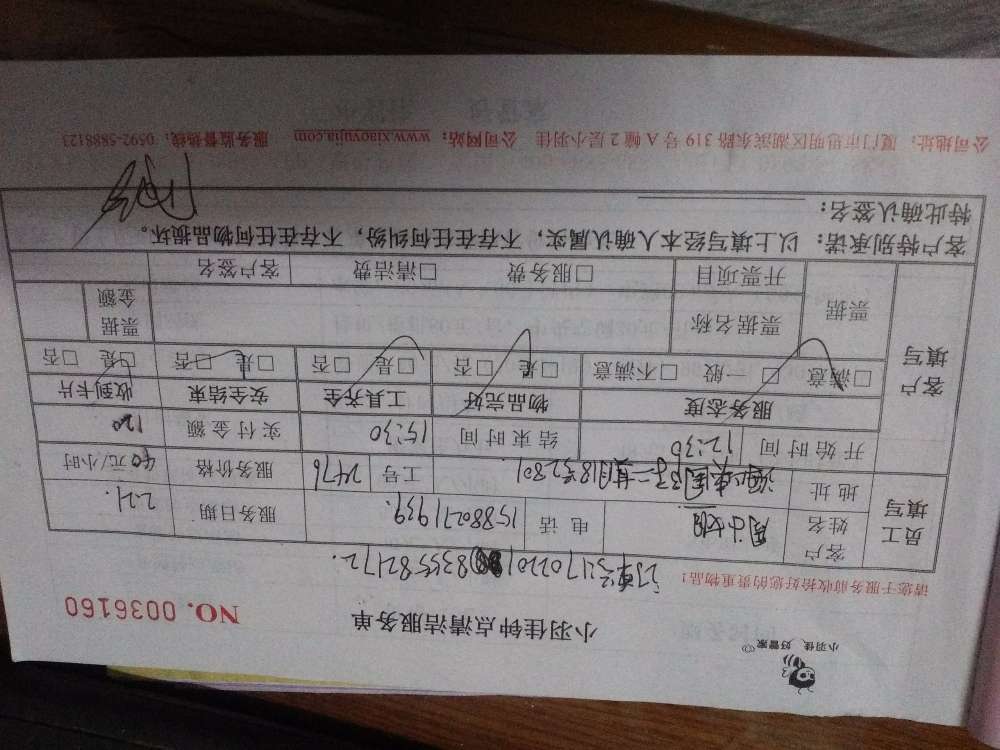 小羽佳 好管家
小羽佳钟点清洁服务单
NO. 0036160
请您于服务前收拾好您的贵重物品！
员工填写
客户姓名 电话 15880271939. 服务日期 2.21.
地址 工号 2476 服务价格 40元/小时
开始时间 12:30 结束时间 15:30 实付金额 120
客户填写
服务态度 物品完好 工具齐全 安全结束 收到卡片
□满意 □一般 □不满意 □是 □否 □是 □否 □是 □否 □是 □否
票据 票据名称 票据金额
开票项目 □服务费 □清洁费 客户签名
客户特别承诺：以上填写经本人确认属实，不存在任何纠纷，不存在任何物品损坏。
特此确认签名：
公司地址：厦门市思明区湖滨东路 319 号 A 幢 2 层小羽佳 公司网站：www.xiaoyujia.com 服务监督热线：0592-5888123